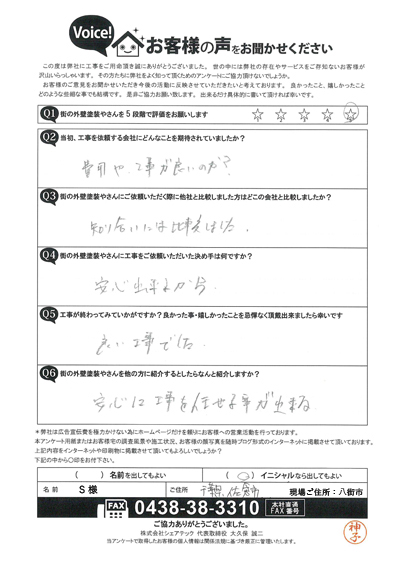 Voice!
お客様の声をお聞かせください
この度は弊社に工事をご用命頂き誠にありがとうございました。世の中には弊社の存在やサービスをご存知ないお客様が
沢山いらっしゃいます。その方たちに弊社をよく知って頂くためのアンケートにご協力頂けないでしょうか。
お客様のご意見をお聞かせいただき今後の活動に反映させていただきたいと考えております。良かったこと、嬉しかったこと
どのような些細な事でも結構です。是非ご協力お願い致します。出来るだけ具体的に書いて頂ければ幸いです。
Q1 街の外壁塗装やさんを5段階で評価をお願いします ☆ ☆ ☆ ☆ ☆
Q2 当初、工事を依頼する会社にどんなことを期待されていましたか?
費用や、工事が良いのか?
Q3 街の外壁塗装やさんにご依頼いただく際に他社と比較しました方はどこの会社と比較しましたか?
知り合いには比較はした。
Q4 街の外壁塗装やさんに工事をご依頼いただいた決め手は何ですか?
安心出来るから
Q5 工事が終わってみていかがですか?良かった事・嬉しかったことを忌憚なく頂戴出来ましたら幸いです
良い工事でした
Q6 街の外壁塗装やさんを他の方に紹介するとしたらなんと紹介しますか?
安心に工事を任せる事が出来る
*弊社は広告宣伝費を極力かけない為にホームページだけを頼りにお客様への営業活動を行っております。
本アンケート用紙またはお客様宅の調査風景や施工状況、お客様の顔写真を随時ブログ形式のインターネットに掲載させて頂いております。
上記内容をインターネットや印刷物に掲載させて頂いてもよろしいでしょうか?
下記の中から○印をお付下さい。
( )名前を出してもよい (○)イニシャルなら出してもよい
名前 S様 ご住所 千葉県佐倉市 現場ご住所:八街市
FAX 0438-38-3310 木村実酒 FAX番号
ご協力ありがとうございました。
株式会社シェアテック 代表取締役 大久保 誠二
当アンケートで取得したお客様の個人情報は関係法規に基づき厳正に管理いたします。
神子